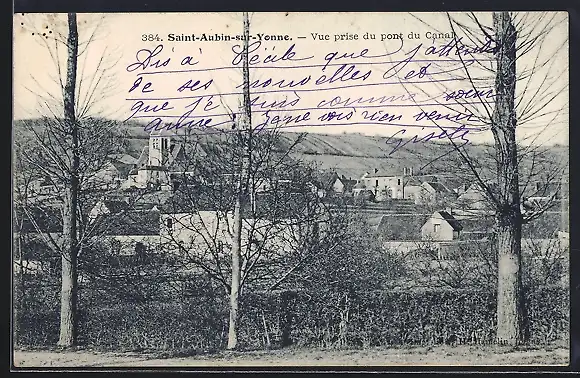 384. Saint-Aubin-sur-Yonne. — Vue prise du pont du Canal
Dis à Cécile que j'attends
de ses nouvelles et
que je suis comme soeur
Anne, je ne vois rien venir
Gisèle
Hamelin